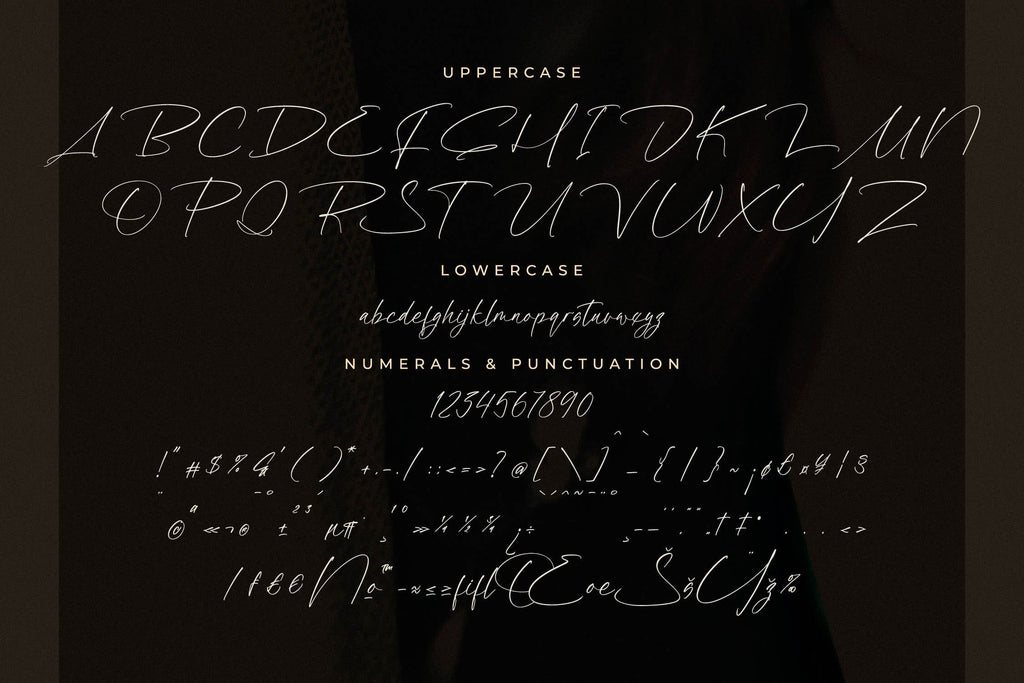 UPPERCASE
ABCDEFGHIJKLMN
OPQRSTUVWXYZ
LOWERCASE
abcdefghijklmnopqrstuvwxyz
NUMERALS & PUNCTUATION
1234567890
!"#$%&'()*+,-./:;<=>?@[\]^_`{|}~¡¢£¤¥¦§
¨©ª«¬®¯°±²³´µ¶·¸¹º»¼½¾¿÷
/ƒ₤€№™−≈≤≥fiflŒœŠšŸž‰